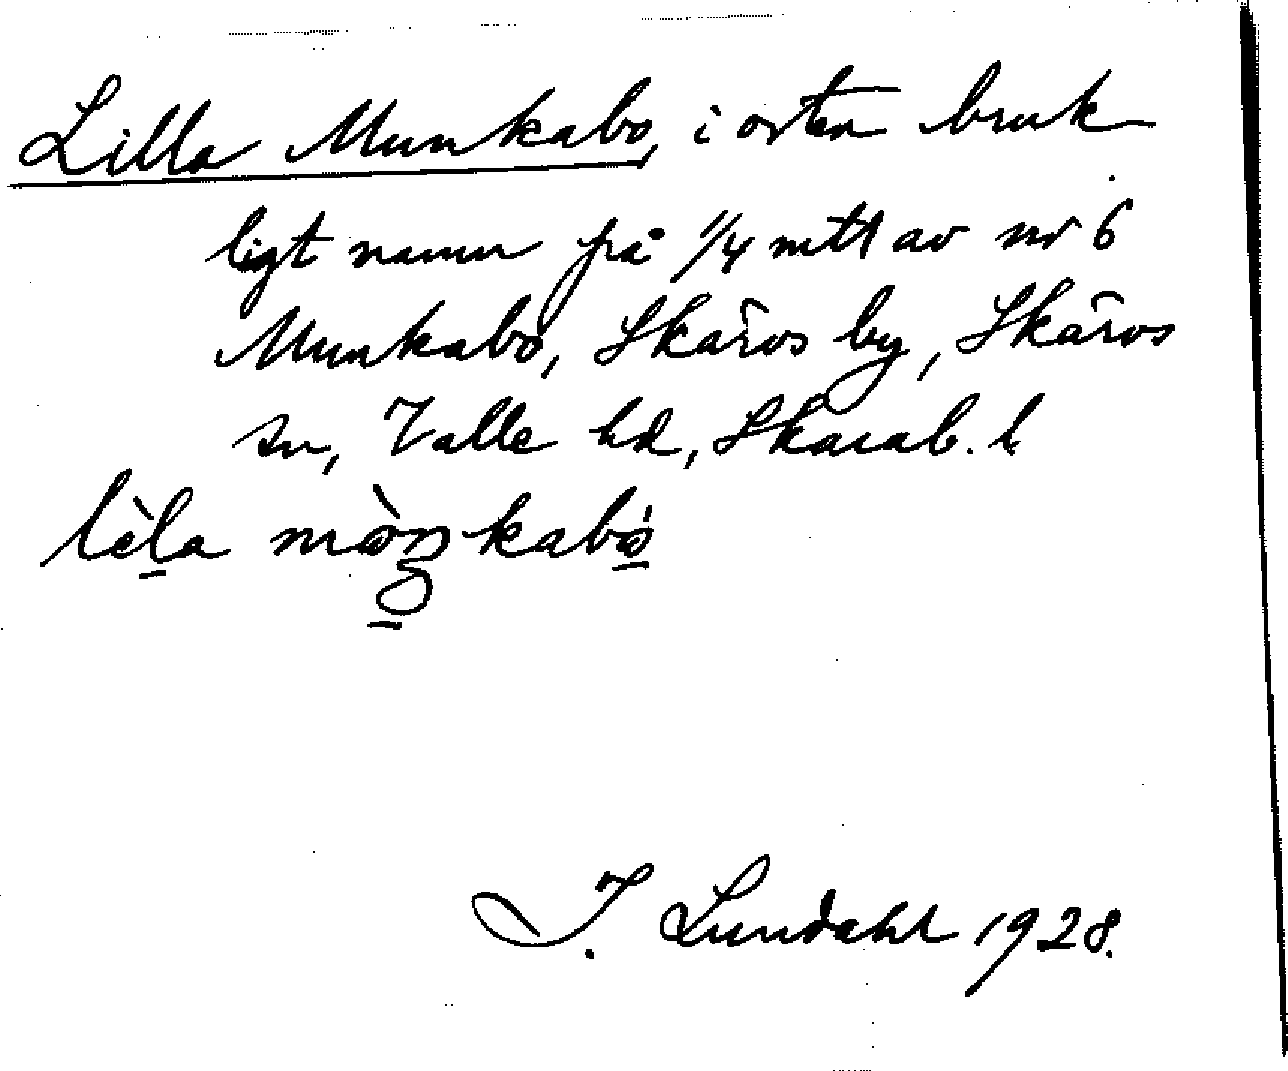 Lilla Munkabo, i orten bruk
ligt namn på 1/4 mtl av nr 6
Munkabo, Skärvs by, Skärvs
sn, Valle hd, Skarab. l
lèla
I. Lundahl 1928.